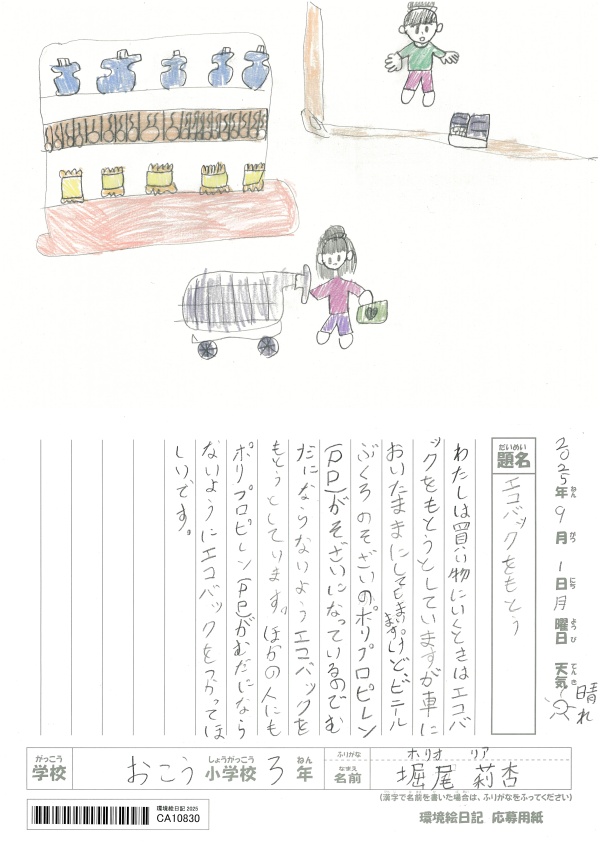 2025年9月1日月曜日 天気 晴れ
ねん がつ にち ようび てんき
だいめい
題名
エコバックをもとう
わたしは買い物にいくときはエコバ
ックをもとうとしていますが車に
おいたままにしてしまいますけど、ビニール
ぶくろのそざいのポリプロピレン
(PP)がそざいになっているのでむ
だにならないようエコバックを
もとうとしています。ほかの人にも
ポリプロピレン(PP)がむだになら
ないようにエコバックをつかってほ
しいです。
がっこう しょうがっこう ねん ふりがな ホリオ リア
学校 おこう 小学校 3年 なまえ 名前 堀尾 莉杏
(漢字で名前を書いた場合は、ふりがなをふってください)
環境絵日記 2025
CA10830
環境絵日記 応募用紙